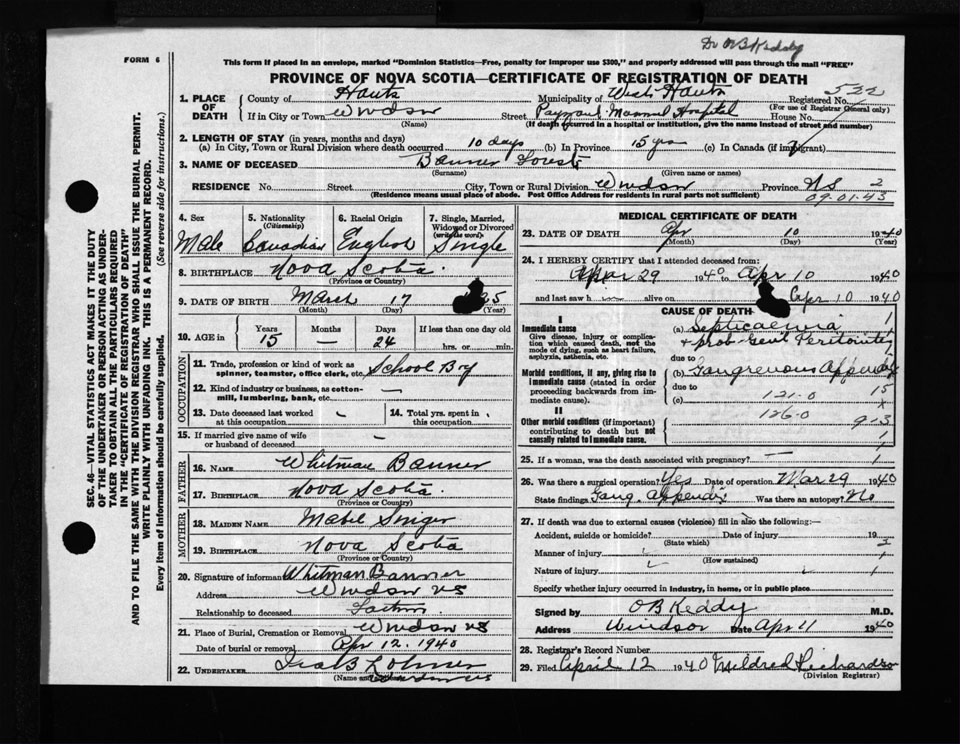 Dr OB Keddy
FORM 6
This form if placed in an envelope, marked "Dominion Statistics—Free, penalty for improper use $300," and properly addressed will pass through the mail "FREE"
PROVINCE OF NOVA SCOTIA—CERTIFICATE OF REGISTRATION OF DEATH
522
1. PLACE OF DEATH
County of Hants Municipality of West Hants Registered No.
(For use of Registrar General only)
If in City or Town Windsor Street Payzant Memorial Hospital House No.
(Name) (If death occurred in a hospital or institution, give the name instead of street and number)
2. LENGTH OF STAY (in years, months and days)
(a) In City, Town or Rural Division where death occurred 10 days (b) In Province 15 yrs (c) In Canada (if immigrant)
3. NAME OF DECEASED Banner
(Surname) (Given name or names)
RESIDENCE No. Street City, Town or Rural Division Windsor Province NS 2
(Residence means usual place of abode. Post Office Address for residents in rural parts not sufficient) 09.01.43
4. Sex 5. Nationality (Citizenship) 6. Racial Origin 7. Single, Married, Widowed or Divorced (write the word)
Male Canadian English Single
8. BIRTHPLACE Nova Scotia
(Province or Country)
9. DATE OF BIRTH March 17 25
(Month) (Day) (Year)
10. AGE in Years Months Days If less than one day old
15 — 24 hrs. or min.
OCCUPATION
11. Trade, profession or kind of work as spinner, teamster, office clerk, etc. School Boy
12. Kind of industry or business, as cotton-mill, lumbering, bank, etc. —
13. Date deceased last worked at this occupation 14. Total yrs. spent in this occupation
15. If married give name of wife or husband of deceased —
FATHER
16. NAME Whitman Banner
17. BIRTHPLACE Nova Scotia
(Province or Country)
MOTHER
18. MAIDEN NAME Mabel
19. BIRTHPLACE Nova Scotia
(Province or Country)
20. Signature of informant Whitman Banner
Address Windsor NS
Relationship to deceased Father
21. Place of Burial, Cremation or Removal Windsor NS
Date of burial or removal Apr 12, 1940
22. UNDERTAKER
(Name and
MEDICAL CERTIFICATE OF DEATH
23. DATE OF DEATH Apr 10 1940
(Month) (Day) (Year)
24. I HEREBY CERTIFY that I attended deceased from:
Mar 29 1940 to Apr 10 1940
and last saw him alive on Apr 10 1940
CAUSE OF DEATH
I
Immediate cause (a) Septicaemia
Give disease, injury or complication which caused death, not the mode of dying, such as heart failure, asphyxia, asthenia, etc.
+ prob. Genl Peritonitis
due to
Morbid conditions, if any, giving rise to immediate cause (stated in order proceeding backwards from immediate cause). (b) Gangrenous Appendix
due to 15
(c) 121.0
II 126.0 9-3
Other morbid conditions (if important) contributing to death but not causally related to immediate cause.
25. If a woman, was the death associated with pregnancy? —
26. Was there a surgical operation? Yes Date of operation Mar 29 1940
State findings Gang. Appendix Was there an autopsy? No
27. If death was due to external causes (violence) fill in also the following:—
Accident, suicide or homicide? Date of injury 19
(State which)
Manner of injury
(How sustained)
Nature of injury
Specify whether injury occurred in industry, in home, or in public place
Signed by OB Keddy M.D.
Address Windsor Date Apr 11 1940
28. Registrar's Record Number
29. Filed April 12 1940 Mildred Richardson
(Division Registrar)
SEC. 46—VITAL STATISTICS ACT MAKES IT THE DUTY
OF THE UNDERTAKER OR PERSON ACTING AS UNDER-
TAKER TO OBTAIN ALL THE PARTICULARS REQUIRED
IN THE "CERTIFICATE OF REGISTRATION OF DEATH"
AND TO FILE THE SAME WITH THE DIVISION REGISTRAR WHO SHALL ISSUE THE BURIAL PERMIT.
WRITE PLAINLY WITH UNFADING INK. THIS IS A PERMANENT RECORD.
Every item of Information should be carefully supplied. (See reverse side for instructions.)